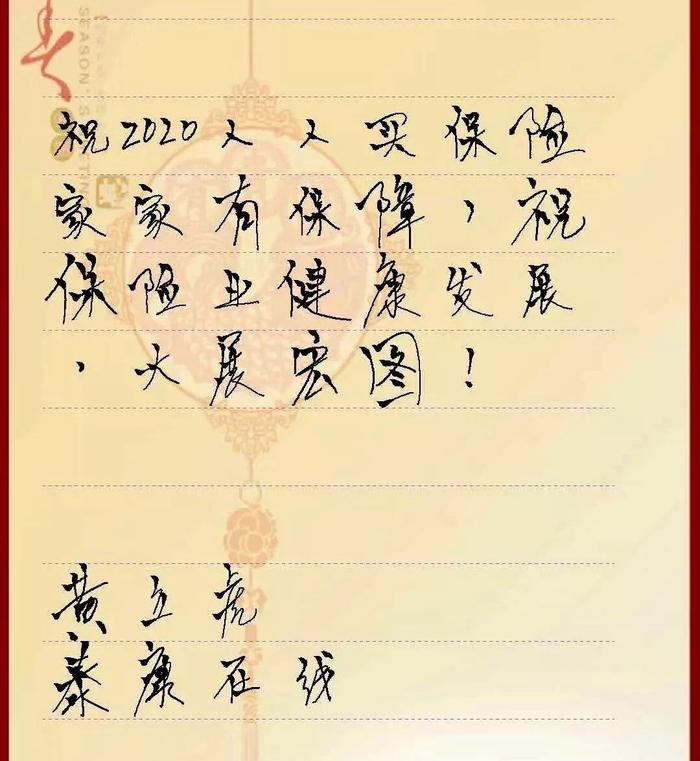 SEASON'S
祝2020人人买保险
家家有保障，祝
保险业健康发展
，大展宏图！
黄立虎
泰康在线